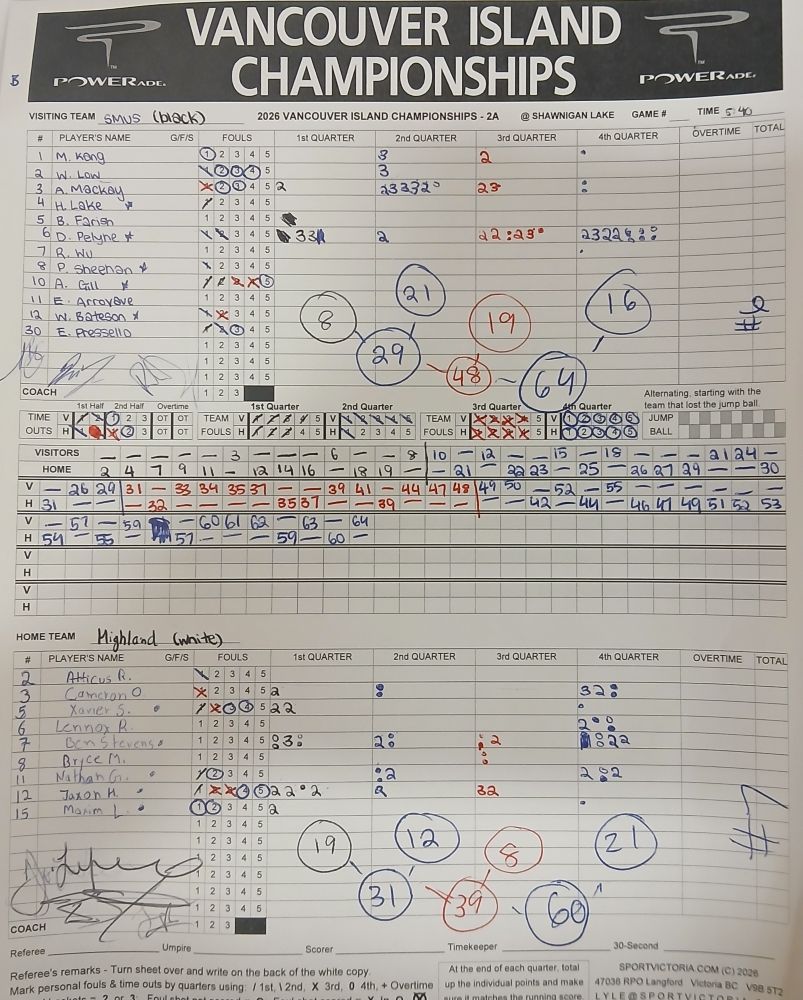 VANCOUVER ISLAND
CHAMPIONSHIPS
POWERADE.
POWERADE.
VISITING TEAM SMUS (black) 2026 VANCOUVER ISLAND CHAMPIONSHIPS - 2A @ SHAWNIGAN LAKE GAME # TIME 5:40
# PLAYER'S NAME G/F/S FOULS 1st QUARTER 2nd QUARTER 3rd QUARTER 4th QUARTER OVERTIME TOTAL
1 M. Kong 1 2 3 4 5 3 2
2 W. Low 1 2 3 4 5 3
3 A. Mackay 1 2 3 4 5 2 23332 23
4 H. Lake 1 2 3 4 5
5 B. Farish 1 2 3 4 5
6 D. Pelyne 1 2 3 4 5 33 2
7 R. Wu 1 2 3 4 5
8 P. Sheehan 1 2 3 4 5
10 A. Gill 1 2 3 4 5
11 E. Arroyave 1 2 3 4 5
12 W. Bateson 1 2 3 4 5
30 E. Pressello 1 2 3 4 5
1 2 3 4 5
1 2 3 4 5
1 2 3 4 5
8 21 29 19 48 16 64
COACH 1 2 3
1st Half 2nd Half Overtime 1st Quarter 2nd Quarter 3rd Quarter 4th Quarter
Alternating, starting with the
team that lost the jump ball.
TIME V 1 2 1 2 3 OT OT TEAM V 1 2 3 4 5 1 2 3 4 5 TEAM V 1 2 3 4 5 V 1 2 3 4 5 JUMP
OUTS H 1 2 1 2 3 OT OT FOULS H 1 2 3 4 5 1 2 3 4 5 FOULS H 1 2 3 4 5 H 1 2 3 4 5 BALL
VISITORS — — — — — 3 — — — 6 — — 8 10 — 12 — — 15 — 18 — — — 21 24 —
HOME 2 4 7 9 11 — 12 14 16 — 18 19 — — 21 — 22 23 — 25 — 26 27 29 — — 30
V — 26 29 31 — 33 34 35 37 — — 39 41 — 44 47 48 49 50 — 52 — 55 — — — — —
H 31 — — — 32 — — — — 35 37 — — 39 — — — — — 42 — 44 — 46 47 49 51 52 53
V — 57 — 59 — 60 61 62 — 63 — 64
H 54 — 55 — 57 — — — 59 — 60 —
V
H
V
H
HOME TEAM Highland (white)
# PLAYER'S NAME G/F/S FOULS 1st QUARTER 2nd QUARTER 3rd QUARTER 4th QUARTER OVERTIME TOTAL
2 Atticus R. 1 2 3 4 5
3 Cameron O. 1 2 3 4 5 2 32
5 Xavier S. 1 2 3 4 5 22
6 Lennox R. 1 2 3 4 5 2
7 Ben Stevens 1 2 3 4 5 3 2 2 22
8 Bryce M. 1 2 3 4 5
11 Nathan G. 1 2 3 4 5 2 2 2
12 Jaxon H. 1 2 3 4 5 22 2 2 32
15 Maxim L. 1 2 3 4 5 2
1 2 3 4 5
1 2 3 4 5
1 2 3 4 5
1 2 3 4 5
1 2 3 4 5
1 2 3 4 5
19 12 31 8 39 21 60
COACH 1 2 3
Referee Umpire Scorer Timekeeper 30-Second
Referee's remarks - Turn sheet over and write on the back of the white copy.
Mark personal fouls & time outs by quarters using: / 1st, \ 2nd, X 3rd, O 4th, + Overtime
At the end of each quarter, total
up the individual points and make
sure it matches the running score.
SPORTVICTORIA.COM (C) 2026
47038 RPO Langford Victoria BC V9B 5T2